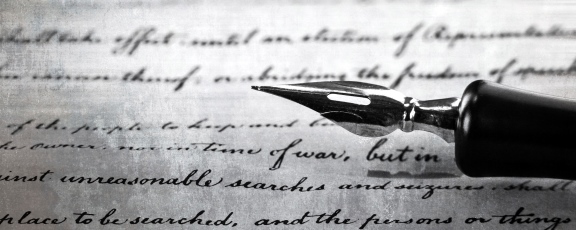 shall take effect, until an election of Representatives
or abridging the freedom of speech
of the people to keep and
the owner, nor in time of war, but in
against unreasonable searches and seizures, shall
place to be searched, and the persons or things